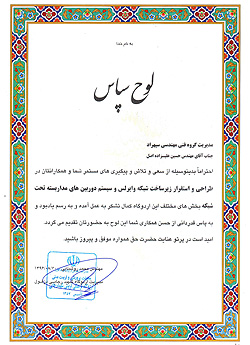 به نام خدا
لوح سپاس
مدیریت گروه فنی مهندسی سپهراد
جناب آقای مهندس حسین علیزاده اصل
احتراماً بدینوسیله از سعی و تلاش و پیگیری های مستمر شما و همکارانتان در
طراحی و استوار زیرساخت شبکه وایرلس و سیستم دوربین های مداربسته تحت
شبکه بخش های مختلف این اردوگاه کمال تشکر به عمل آمده و به رسم یادبود و
به پاس قدردانی از حسن همکاری شما این لوح به حضورتان تقدیم می گردد.
امید است در پرتو عنایت حضرت حق همواره موفق و پیروز باشید.